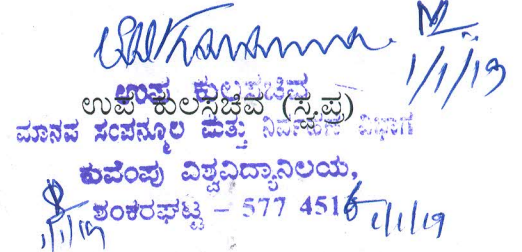 1/1/19
ಉಪ ಕುಲಸಚಿವ
ಉಪ ಕುಲಸಚಿವ (ಸ್ವಪ್ರ)
ಮಾನವ ಸಂಪನ್ಮೂಲ ಮತ್ತು ನಿರ್ವಹಣಾ ವಿಭಾಗ
ಕುವೆಂಪು ವಿಶ್ವವಿದ್ಯಾನಿಲಯ,
ಶಂಕರಘಟ್ಟ – 577 451
1/1/19
1/1/19